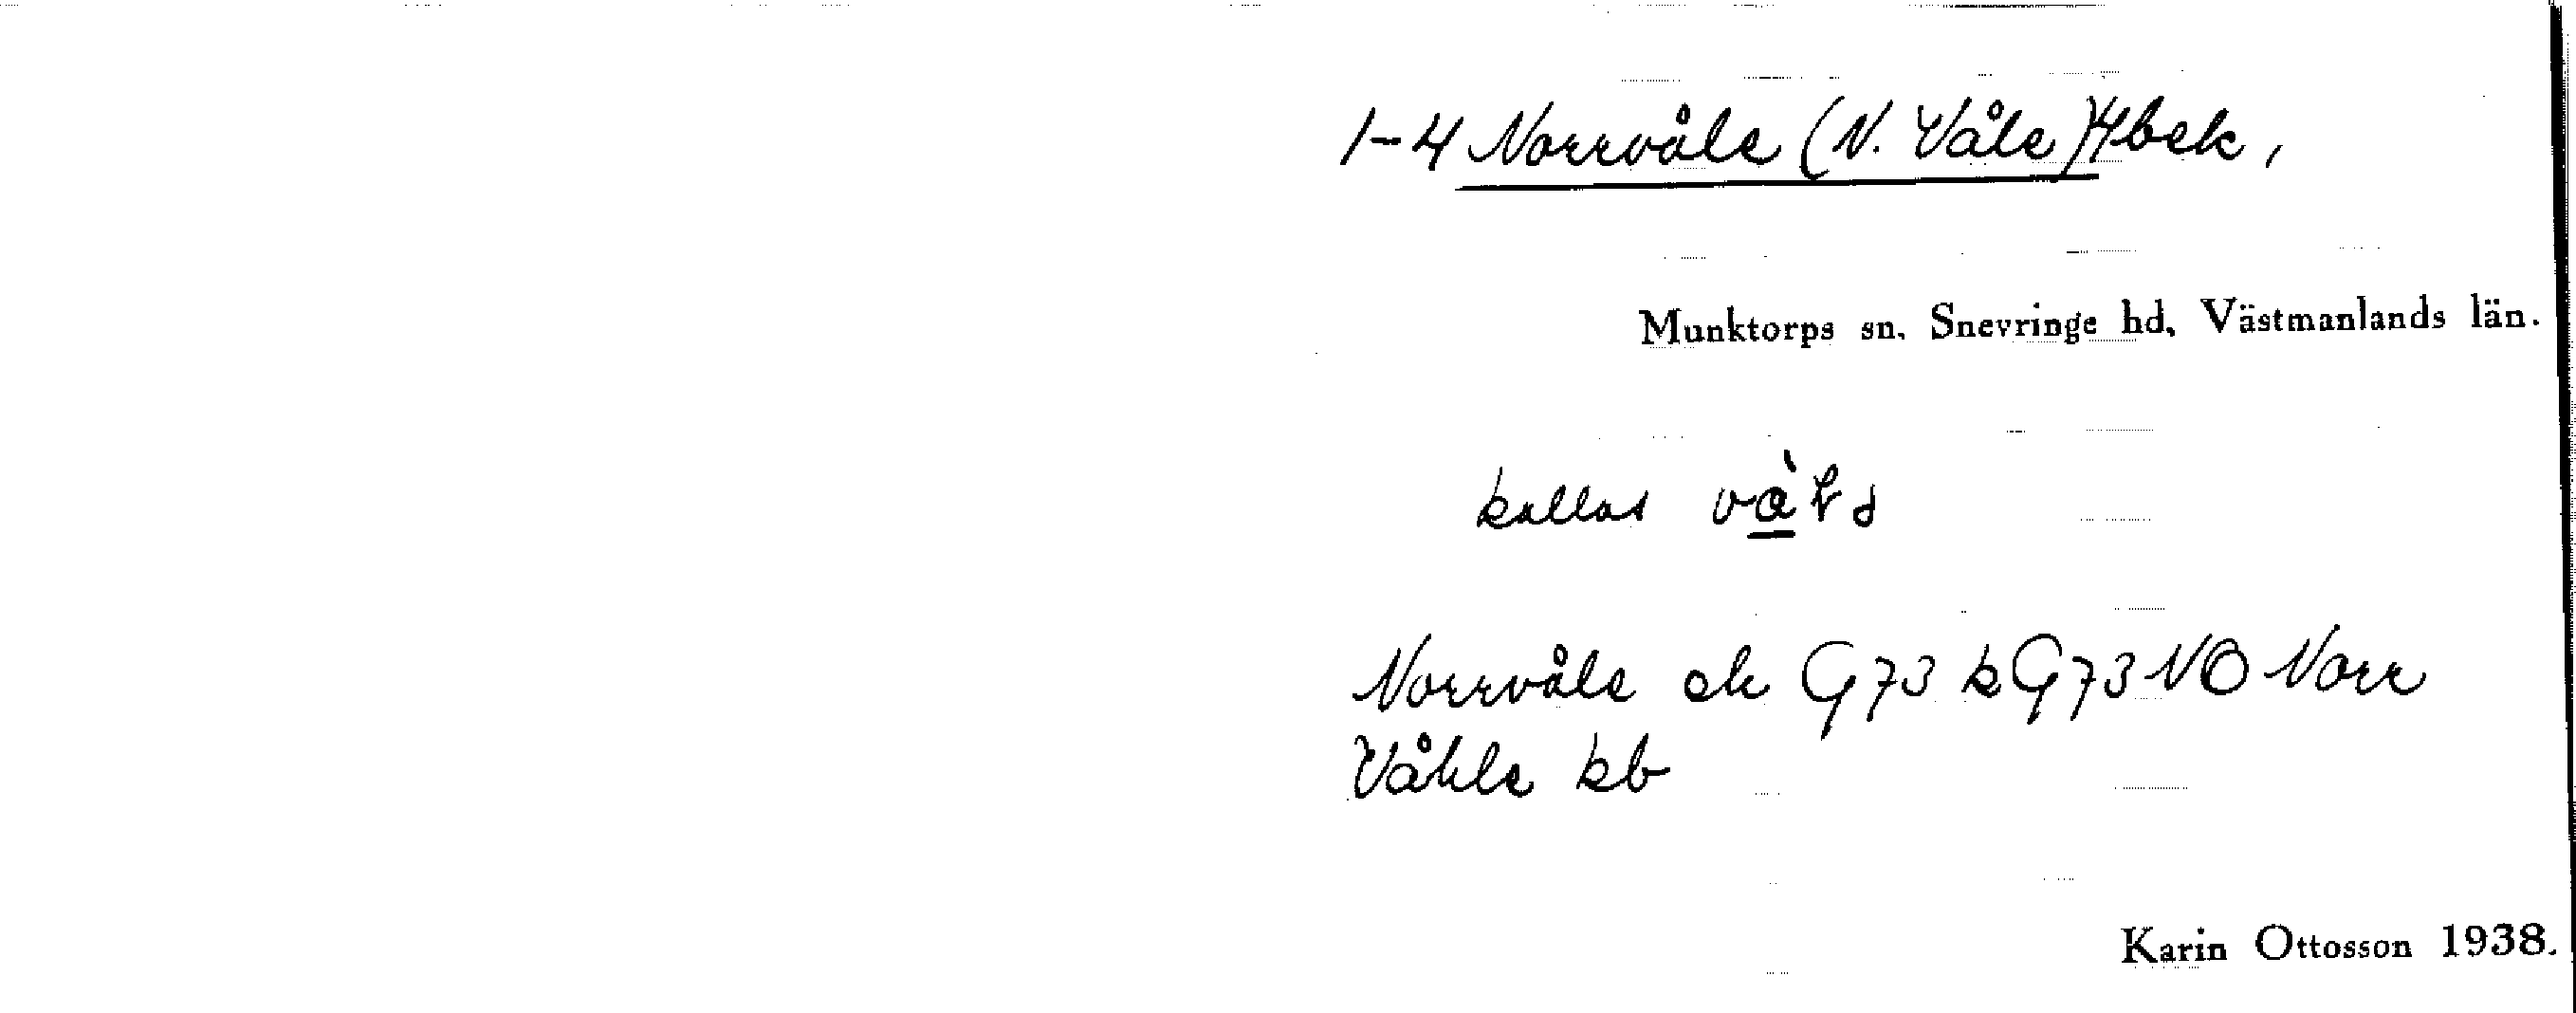 1-4 Norrvåle (N. Våle) 4bek,
Munktorps sn. Snevringe hd. Västmanlands län.
kallas
Norrvåle ek G73 k G73 NO Norr
Våhle kb
Karin Ottosson 1938.